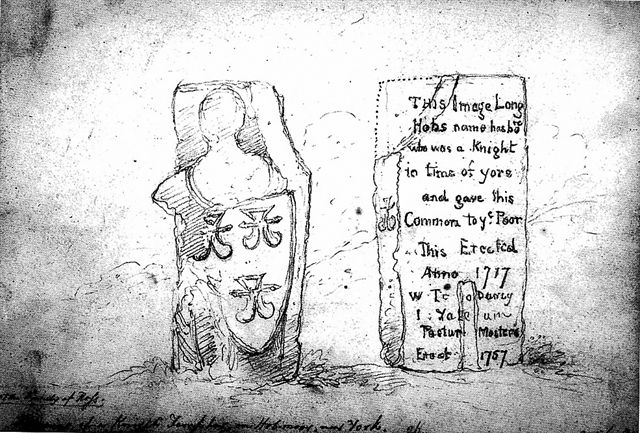 This Image Long
Hobs name has bore
who was a Knight
in time of yore
and gave this
Common to yᵉ Poor
This Erected
Anno 1717
W T o Darcy
I : Yate um
Pastur Masters
Erect 1757
of a Knight Templar on Hobmoor, near York.